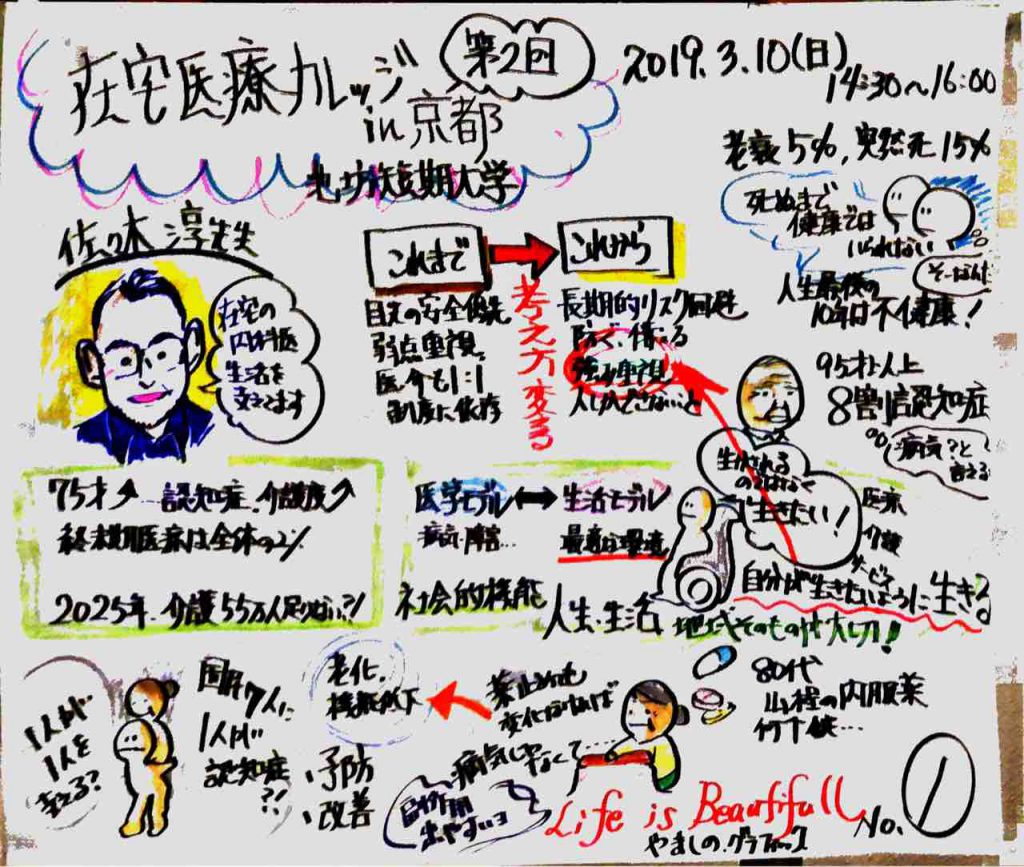 在宅医療カレッジ
第2回
in京都
2019.3.10(日)
14:30〜16:00
短期大学
老衰5%,突然死15%
死ぬまで
健康では
いられない
そーなんだ
人生最後の
10年は不健康!
佐々木 淳先生
在宅の
内科医
生活を
支えてます
これまで
これから
考え方変る
目先の安全優先
弱点重視
医・介も1:1
制度に依存
長期的リスク回避
防ぐ、備える
強み重視
人しかできないこと
95才以上
8割認知症
病気?と
言える
生かされる
のではなく
生きたい!
医療
介護
サービス
自分が生きたいように生きる
地域そのものが大切!
75才↑ 認知症、介護度↑
終末期医療は全体の2%
2025年 介護55万人足りない?!
医学モデル↔生活モデル
病気・障害…
最適な環境
社会的機能
人生・生活
1人が
1人を
支える?
国民7人に
1人が
認知症
?!
老化、
機能低下
・予防
・改善
薬止めても
変化なければ
病気じゃなくて
副作用
出やすいヨ
80代
山程の内服薬
何十錠…
Life is Beautifull
やましの.グラフィック
No.1